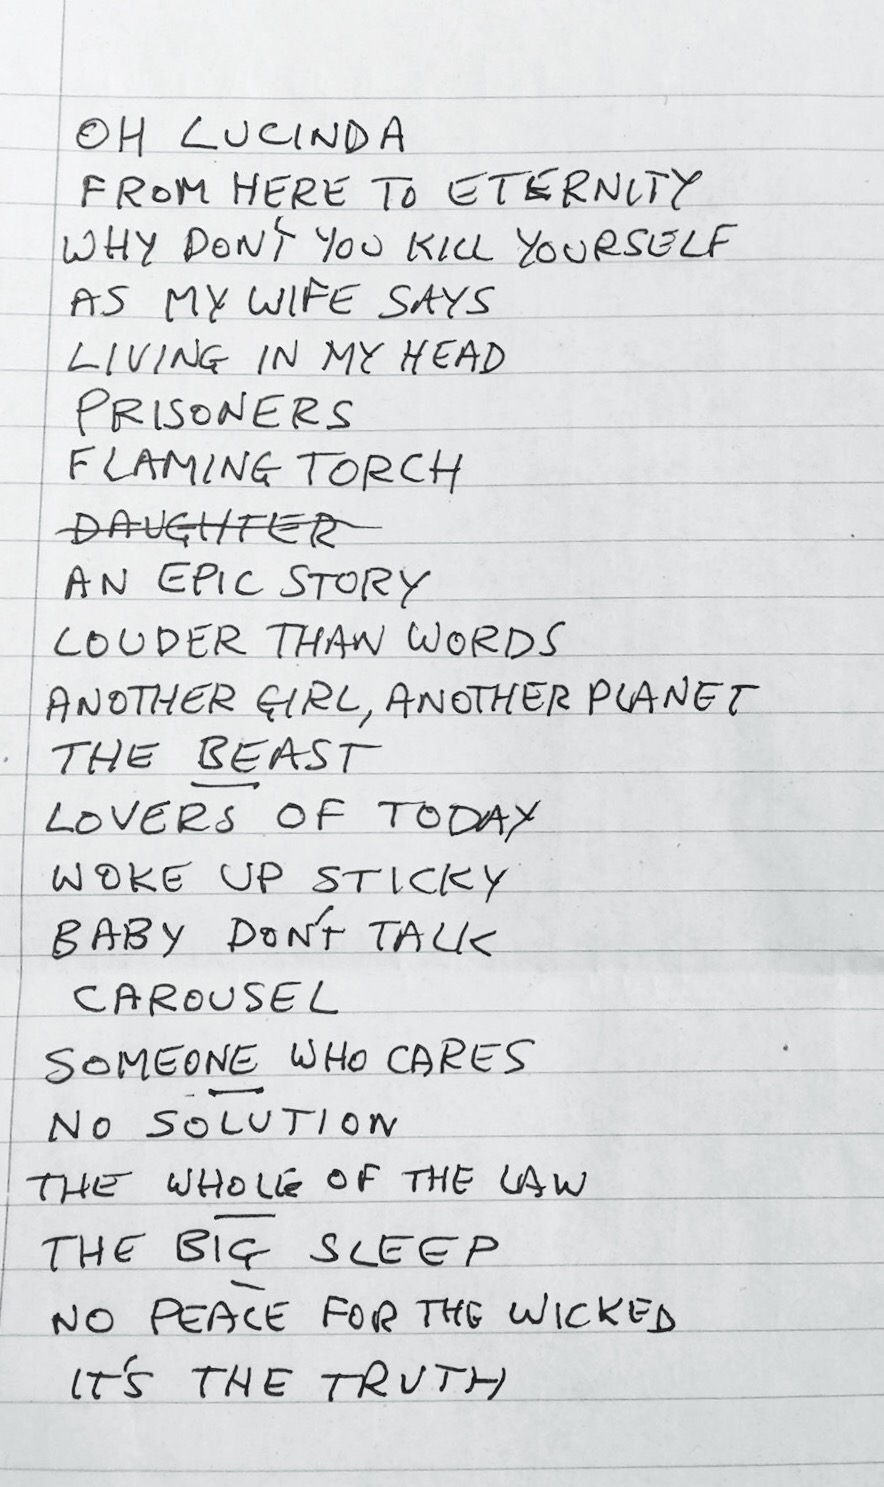 OH LUCINDA
FROM HERE TO ETERNITY
WHY DON'T YOU KILL YOURSELF
AS MY WIFE SAYS
LIVING IN MY HEAD
PRISONERS
FLAMING TORCH
DAUGHTER
AN EPIC STORY
LOUDER THAN WORDS
ANOTHER GIRL, ANOTHER PLANET
THE BEAST
LOVERS OF TODAY
WOKE UP STICKY
BABY DON'T TALK
CAROUSEL
SOMEONE WHO CARES
NO SOLUTION
THE WHOLE OF THE LAW
THE BIG SLEEP
NO PEACE FOR THE WICKED
IT'S THE TRUTH